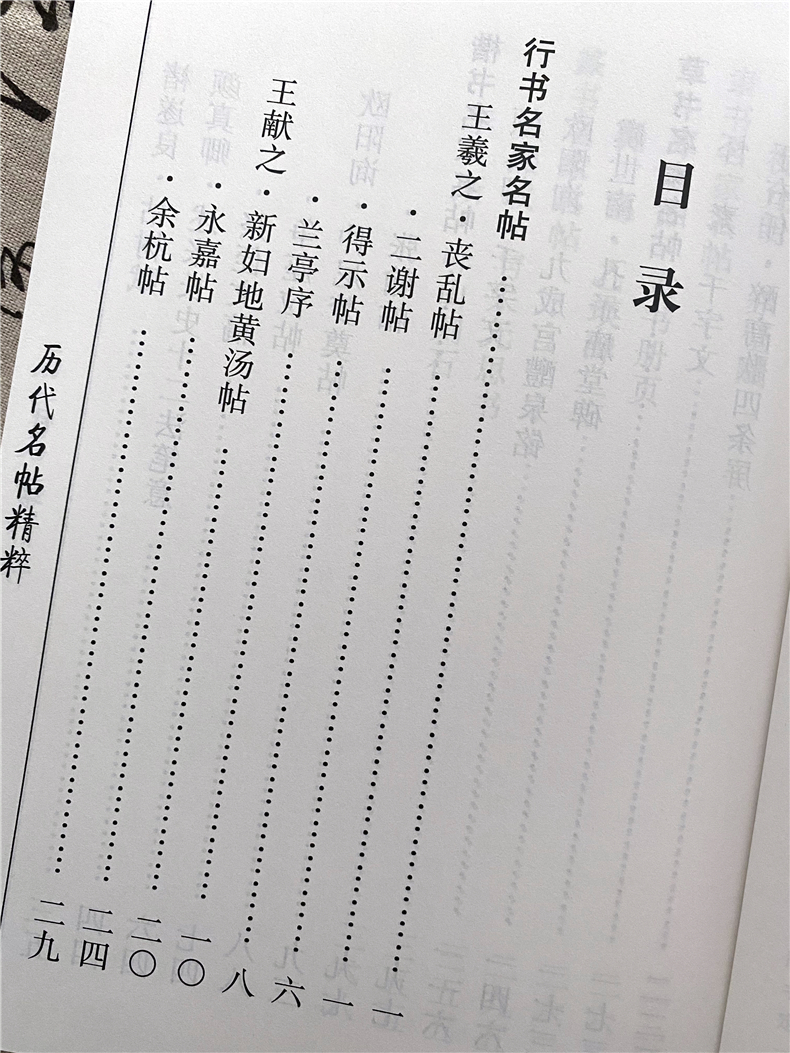 目录
行书名家名帖……一
王羲之·丧乱帖……一
·二谢帖……六
·得示帖……八
·兰亭序……一〇
王献之·新妇地黄汤帖……二〇
·永嘉帖……二四
·余杭帖……二九
历代名帖精粹